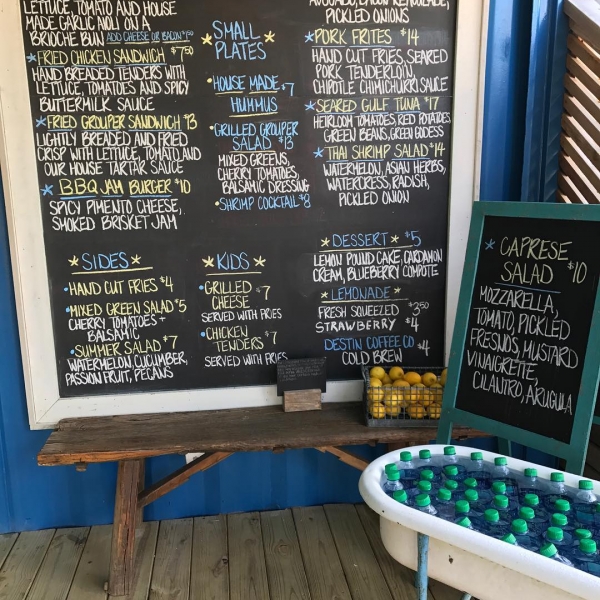 LETTUCE, TOMATO AND HOUSE
MADE GARLIC AIOLI ON A
BRIOCHE BUN ADD CHEESE OR BACON $1.50
FRIED CHICKEN SANDWICH $7.50
HAND BREADED TENDERS WITH
LETTUCE, TOMATOES AND SPICY
BUTTERMILK SAUCE
FRIED GROUPER SANDWICH $13
LIGHTLY BREADED AND FRIED
CRISP WITH LETTUCE, TOMATO AND
OUR HOUSE TARTAR SAUCE
BBQ JAM BURGER $10
SPICY PIMENTO CHEESE,
SMOKED BRISKET JAM
SIDES
HAND CUT FRIES $4
MIXED GREEN SALAD $5
CHERRY TOMATOES +
BALSAMIC
SUMMER SALAD $7
WATERMELON, CUCUMBER,
PASSION FRUIT, PECANS
SMALL
PLATES
HOUSE MADE $7
HUMMUS
GRILLED GROUPER
SALAD $13
MIXED GREENS,
CHERRY TOMATOES,
BALSAMIC DRESSING
SHRIMP COCKTAIL $8
KIDS
GRILLED $7
CHEESE
SERVED WITH FRIES
CHICKEN $7
TENDERS
SERVED WITH FRIES
AVOCADO, ONION REMOULADE,
PICKLED ONIONS
PORK FRITES $14
HAND CUT FRIES, SEARED
PORK TENDERLOIN,
CHIPOTLE CHIMICHURRI SAUCE
SEARED GULF TUNA $17
HEIRLOOM TOMATOES, RED POTATOES,
GREEN BEANS, GREEN GODDESS
THAI SHRIMP SALAD $14
WATERMELON, ASIAN HERBS,
WATERCRESS, RADISH,
PICKLED ONION
DESSERT $5
LEMON POUND CAKE, CARDAMON
CREAM, BLUEBERRY COMPOTE
LEMONADE
FRESH SQUEEZED $3.50
STRAWBERRY $4
DESTIN COFFEE CO $4
COLD BREW
CAPRESE
SALAD $10
MOZZARELLA,
TOMATO, PICKLED
FRESNOS, MUSTARD
VINAIGRETTE,
CILANTRO, ARUGULA